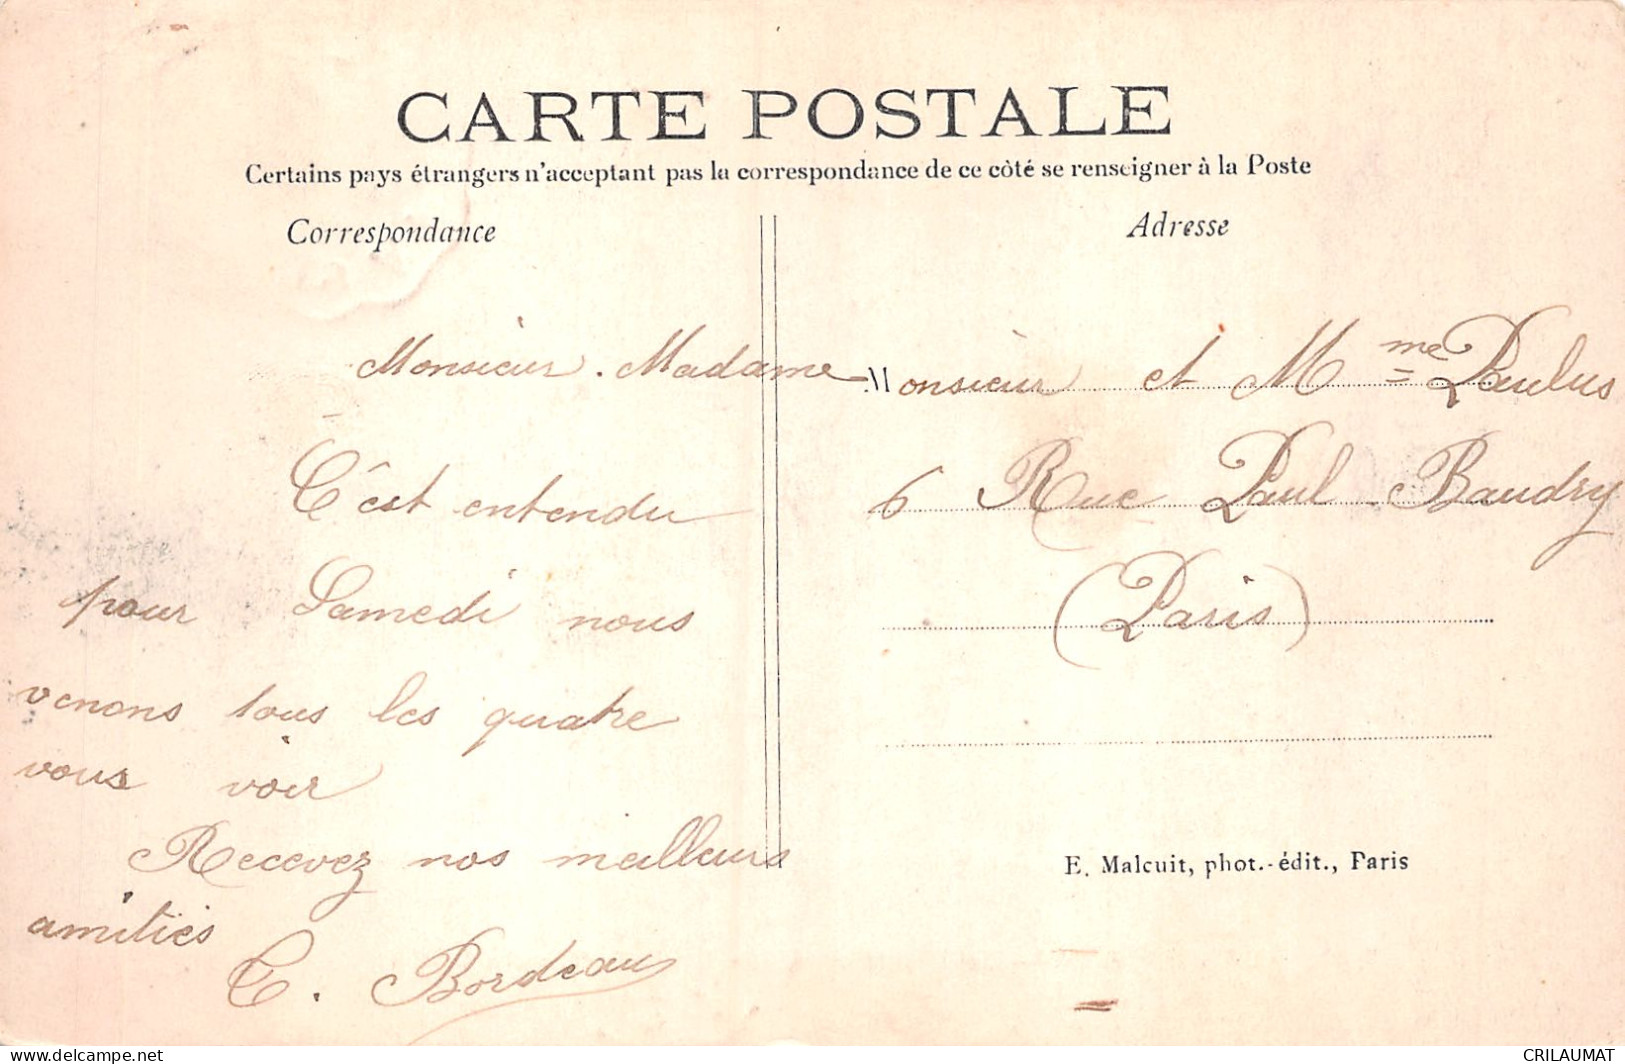 CARTE POSTALE
Certains pays étrangers n'acceptant pas la correspondance de ce côté se renseigner à la Poste
Correspondance
Monsieur. Madame
C'est entendu
pour Samedi nous
venons tous les quatre
vous voir
Recevez nos meilleurs
amitiés
C. Bordeau
Adresse
Monsieur et Mme Paulus
6 Rue Paul Baudry
(Paris)
E. Malcuit, phot.-édit., Paris
delcampe.net
CRILAUMAT